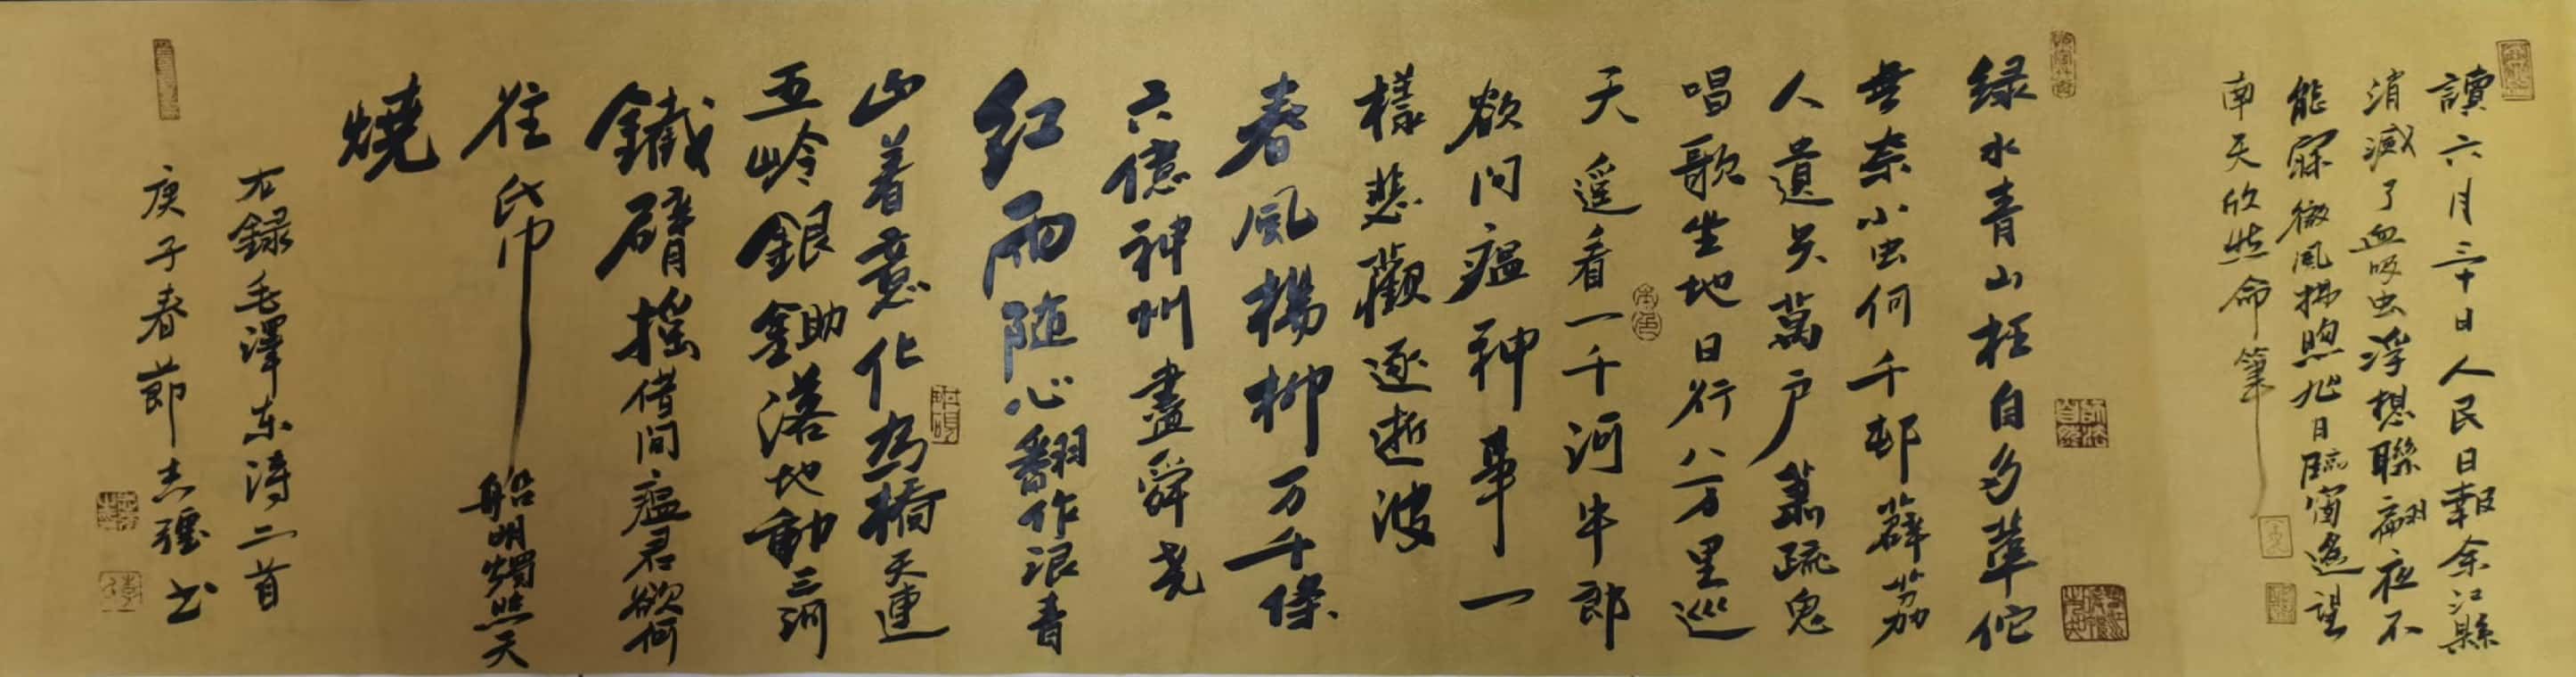 讀六月三十日人民日報余江縣
消滅了血吸虫浮想聯翩夜不
能寐微風拂煦旭日臨窗遙望
南天欣然命筆
绿水青山枉自多華佗
無奈小虫何千邨薜荔
人遺矢萬户蕭疏鬼
唱歌坐地日行八万里巡
天遥看一千河牛郎
欲问瘟神事一
樣悲歡逐逝波
春風楊柳万千條
六億神州盡舜尧
红雨随心翻作浪青
山着意化為橋天連
五岭銀鋤落地動三河
鐵臂摇借问瘟君欲何
往纸船明燭照天
燒
右録毛澤东詩二首
庚子春節志强书